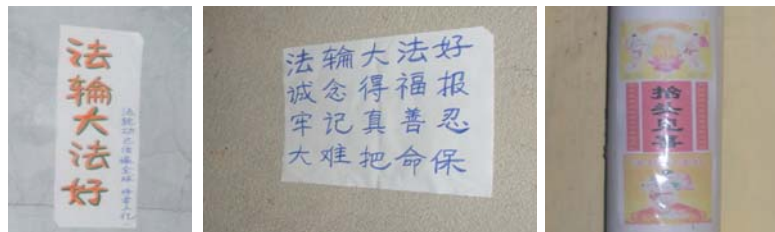 法轮大法好
法轮大法好
诚念得福报
牢记真善忍
大难把命保
抬头见喜